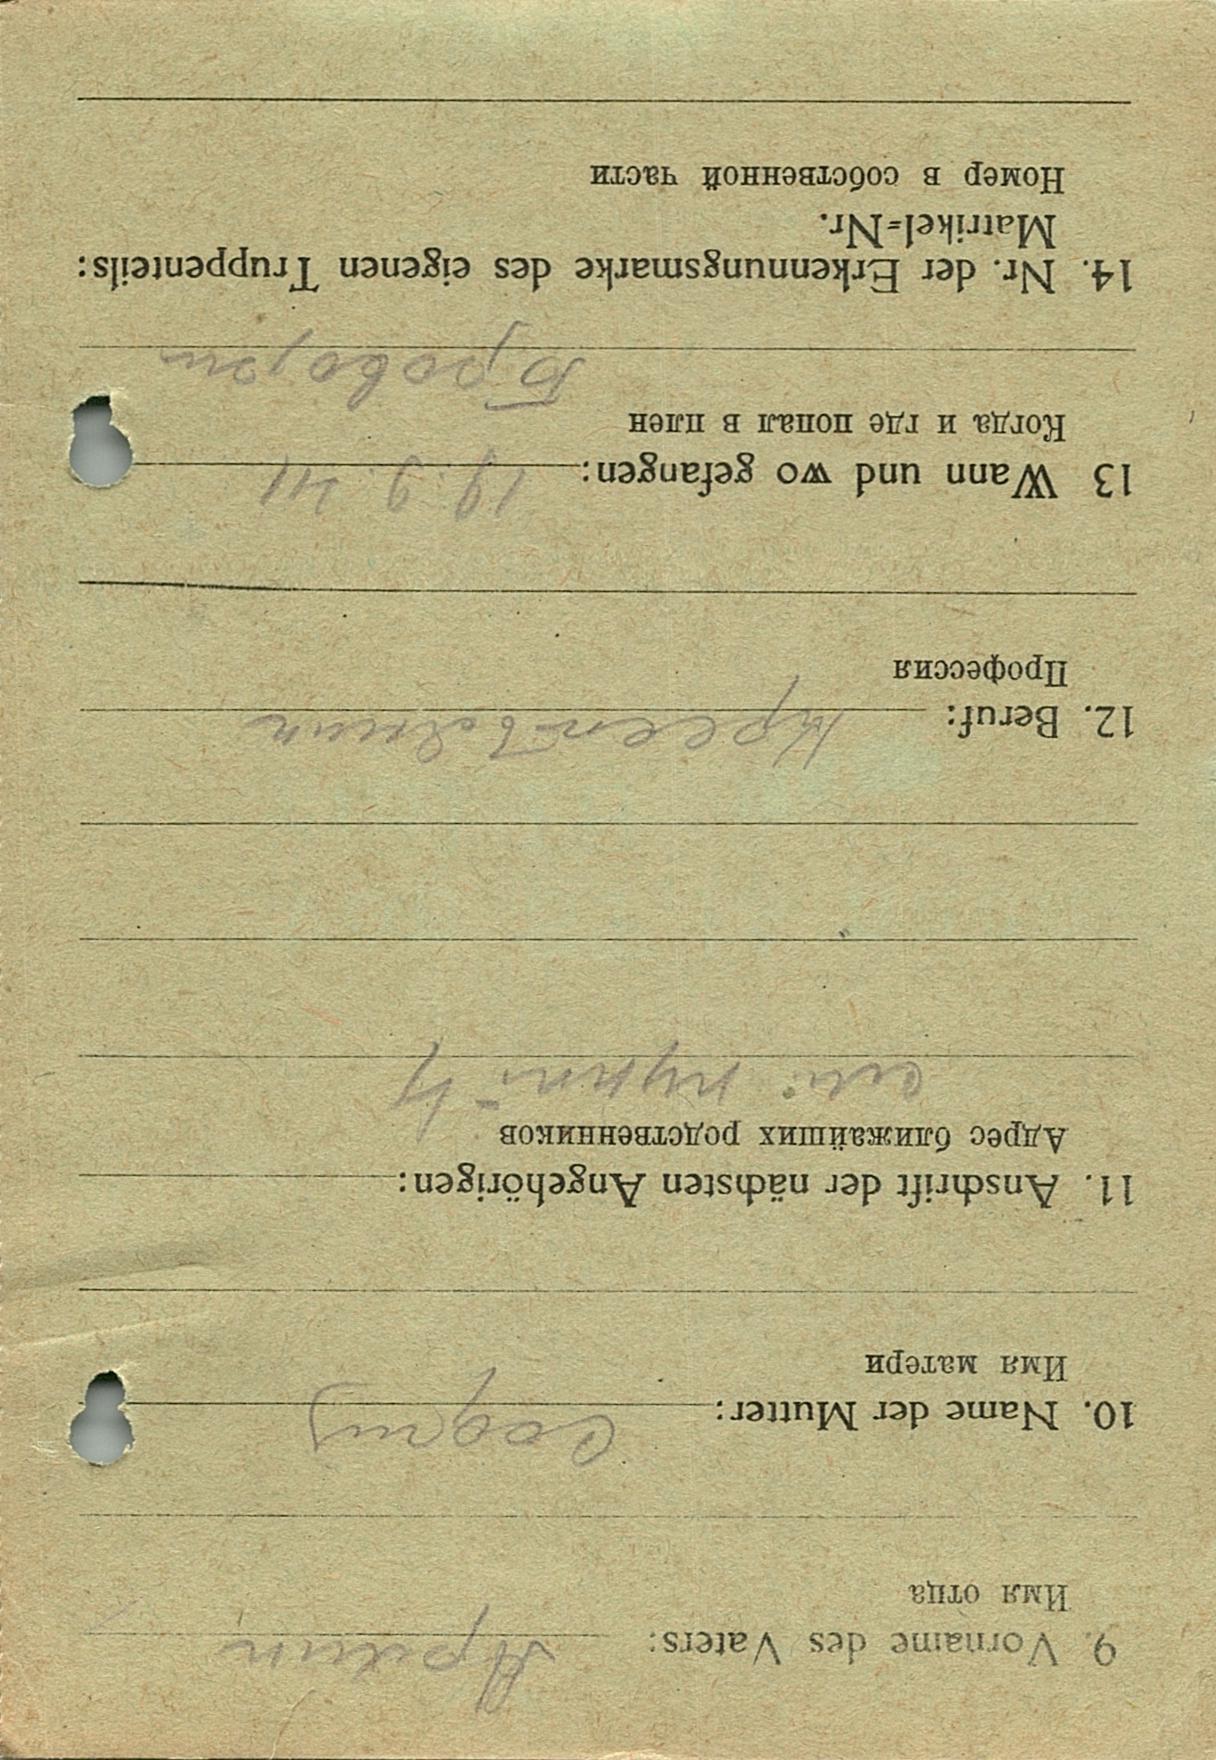 9. Vorname des Vaters:
Имя отца
10. Name der Mutter:
Имя матери
11. Anschrift der nächsten Angehörigen:
Адрес ближайших родственников
см. пункт 4
12. Beruf:
Профессия
13 Wann und wo gefangen: 19.9.41
Когда и где попал в плен
14. Nr. der Erkennungsmarke des eigenen Truppenteils:
Matrikel=Nr.
Номер в собственной части